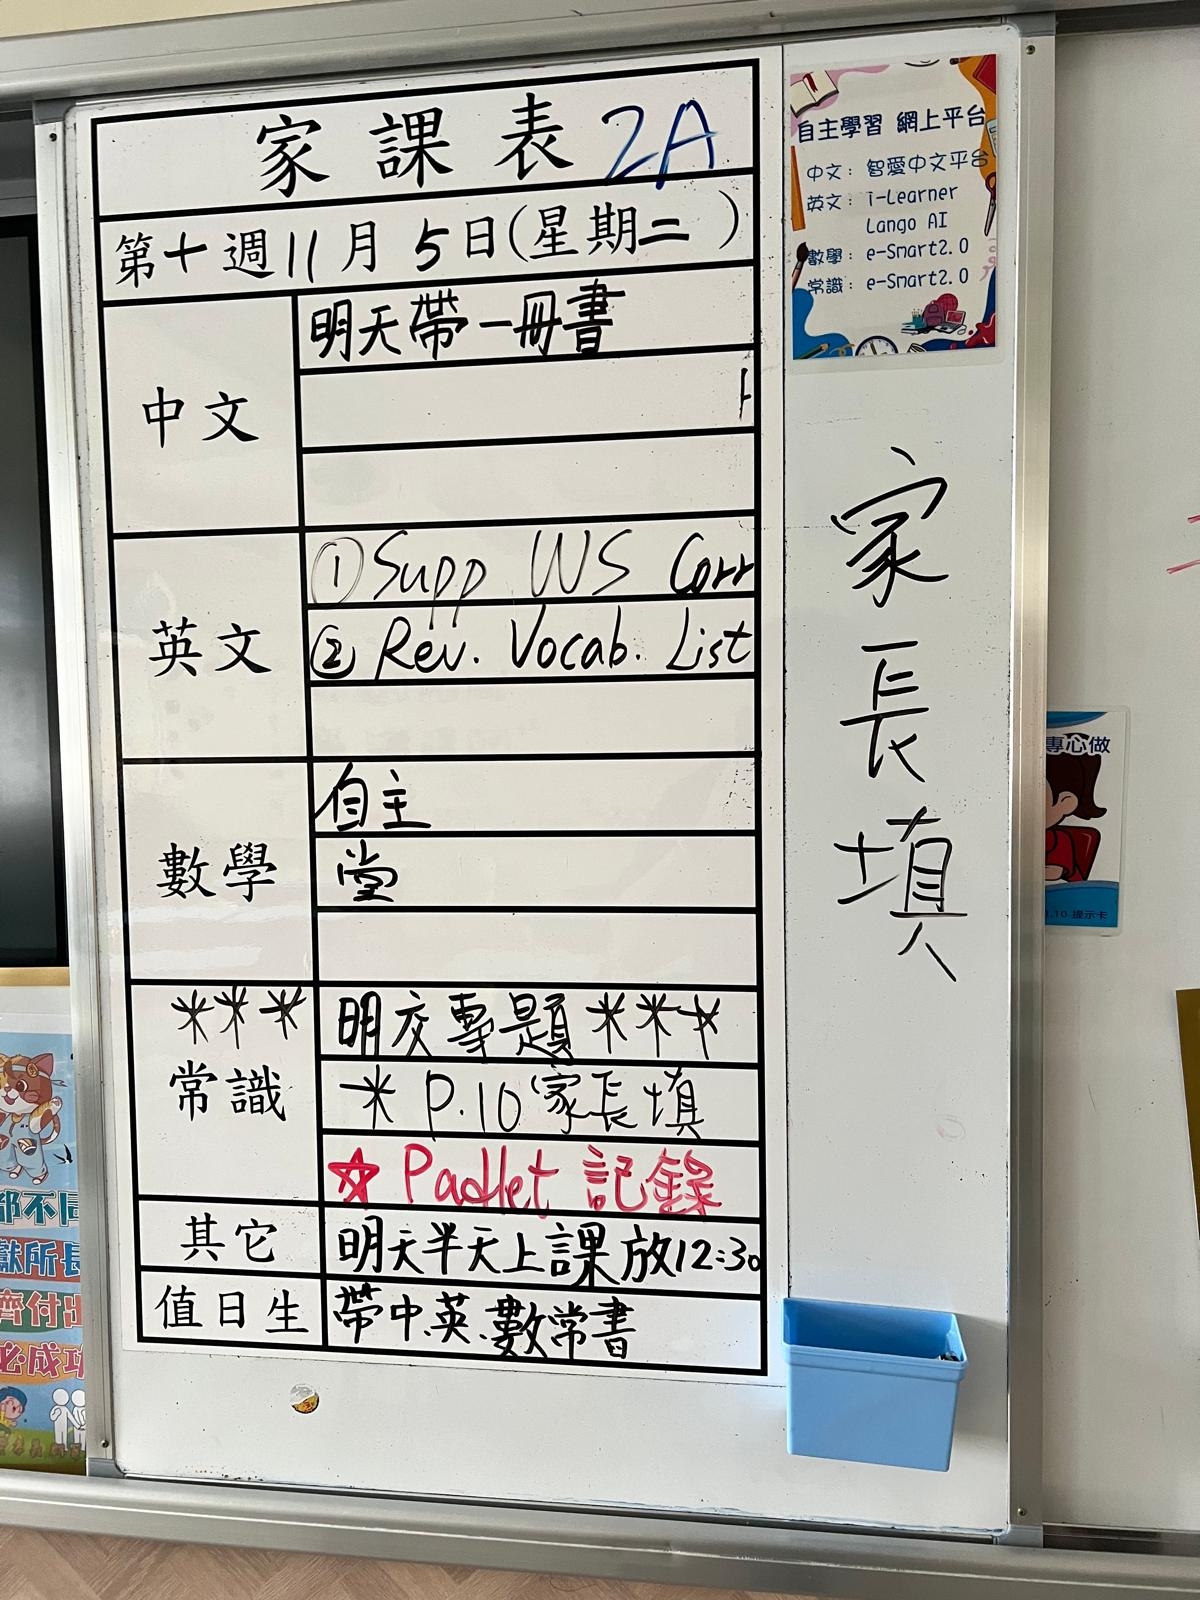 家課表 2A
第十週11月5日(星期二)
中文
明天帶一冊書
英文
①Supp WS Corr
②Rev. Vocab. List
數學
自主
堂
***
常識
明交專題***
* P.10家長填
☆ Padlet 記錄
其它
明天半天上課放12:30
值日生
帶中.英.數常書
自主學習 網上平台
中文：智愛中文平台
英文：i-Learner
Lango AI
數學：e-Smart2.0
常識：e-Smart2.0
家長填
專心做
1.10 提示卡
都不同
獻所長
齊付出
必成功